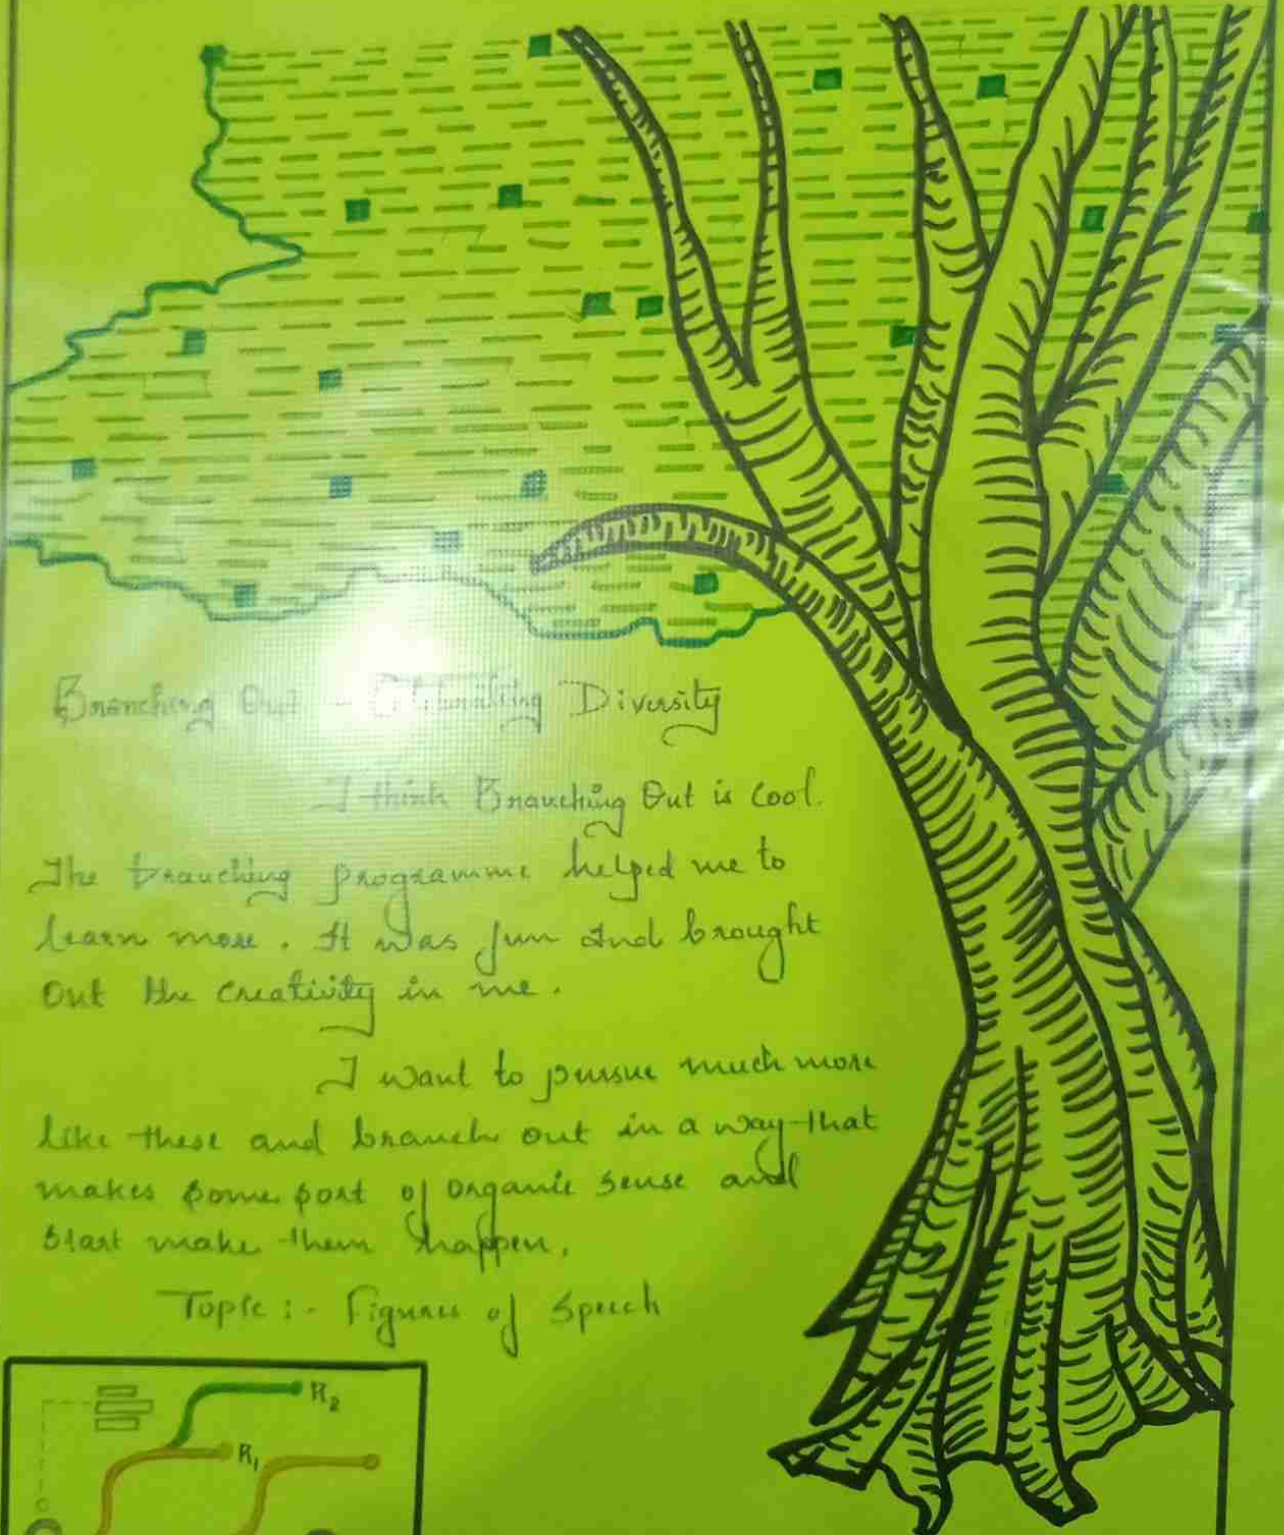 Branching Out - Celebrating Diversity
I think Branching Out is cool.
The branching programme helped me to
learn more. It was fun and brought
out the creativity in me.
I want to pursue much more
like these and branch out in a way that
makes some sort of organic sense and
start make them happen.
Topic :- Figures of Speech
R2
R1